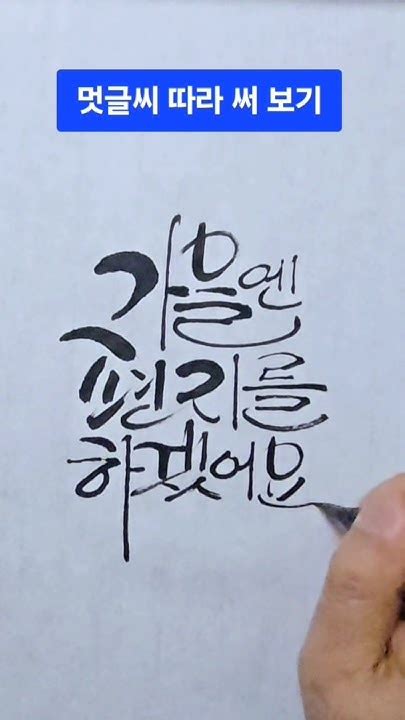 멋글씨 따라 써 보기
가을엔
편지를
하겠어요